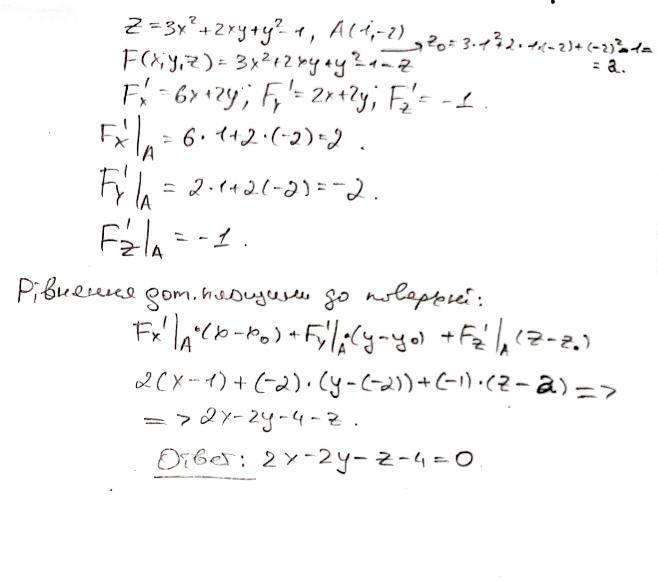 z = 3x² + 2xy + y² - 1, A(1,-2) → z₀ = 3·1² + 2·1·(-2) + (-2)² - 1 =
= 2.
F(x,y,z) = 3x² + 2xy + y² - 1 - z
Fx' = 6x + 2y; Fy' = 2x + 2y; Fz' = -1.
Fx'|A = 6·1 + 2·(-2) = 2.
Fy'|A = 2·1 + 2(-2) = -2.
Fz'|A = -1.
Рівнення дот. площини до поверхні:
Fx'|A·(x-x₀) + Fy'|A·(y-y₀) + Fz'|A(z-z₀)
2(x-1) + (-2)·(y-(-2)) + (-1)·(z-2) =>
=> 2x - 2y - 4 - z.
Ответ: 2x - 2y - z - 4 = 0